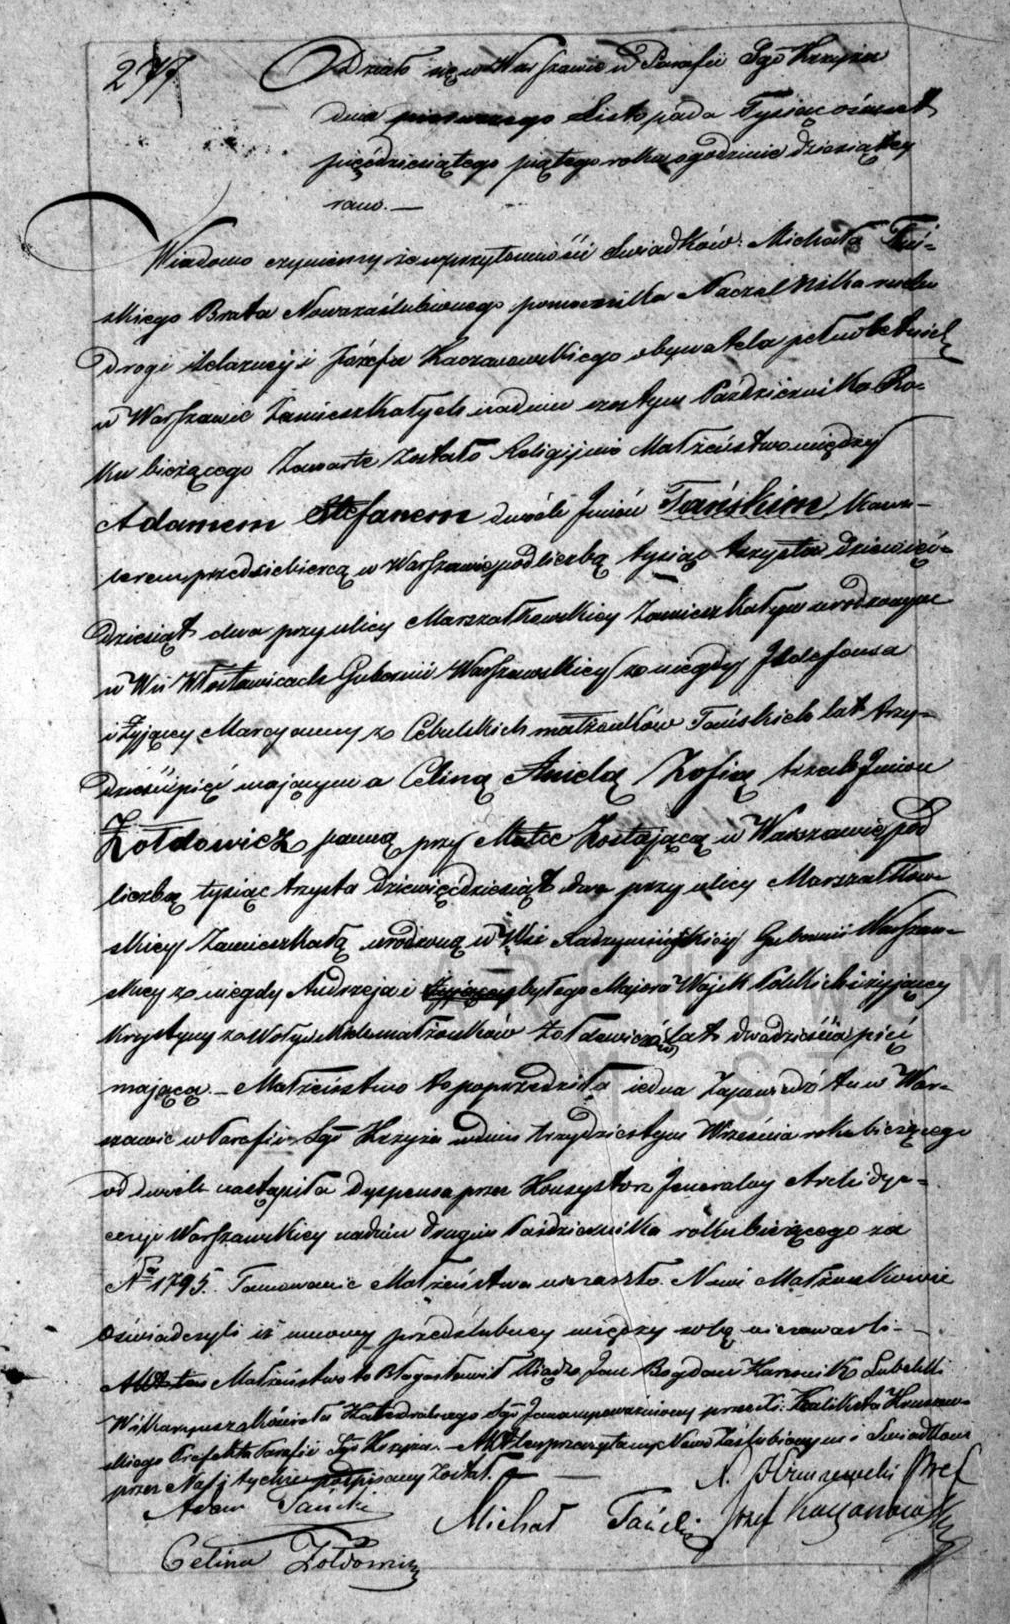 277
Działo się w Warszawie w Parafii Sgo Krzyża
dnia pierwszego Listopada Tysiąc ośmset
pięćdziesiątego piątego roku o godzinie dziesiątey
rano. —
Wiadomo czyniemy że w przytomności Swiadków: Michała Tań-
skiego Brata Nowozaślubionego pomocnika Naczelnika ruchu
Drogi Żelazney i Józefa Kaczanowskiego obywatela pełnoletnich
w Warszawie Zamieszkałych na dniu szóstym Października Ro-
ku bieżącego Zawarte Zostało Religijnie Małżeństwo między
Adamem Stefanem dwóch Jmion Tańskim Kawa-
lerem przedsiebiercą w Warszawie pod liczbą tysiąc trzysta dziewięć-
dziesiąt dwa przy ulicy Marszałkowskiey Zamieszkałym urodzonym
w Wsi Włostowicach Gubernii Warszawskiey z niegdy Ildefonsa
i żyjącey Marcyanny z Cebulskich małżonków Tańskich lat trzy-
dzieści pięć mającym a Celiną Anielą Zofią trzech Jmion
Żołdowicz panną przy Matce Zostającą w Warszawie pod
liczbą tysiąc trzysta dziewięćdziesiąt dwa przy ulicy Marszałkow-
skiey Zamieszkałą urodzoną w Wsi Gubernii Warszaw-
skiey z niegdy Andrzeja i byłego Majora Wojsk Polskich i żyjącey
Krystyny z małżonków Żołdowiczów lat dwadzieścia pięć
mającą. — Małżeństwo to poprzedziła jedna Zapowiedź tu w War-
szawie w Parafii Sgo Krzyża w dniu trzydziestym Września roku bieżącego
od dwóch nastąpiła Dyspensa przez Konsystorz Jeneralny Archidye-
cezyi Warszawskiey na dniu drugim Października roku bieżącego za
Nrem 1795. Tamowanie Małżeństwa nie zaszło. Nowi Małżonkowie
Oświadczyli iż umowy przedślubney między sobą nie zawarli. —
Małżeństwo to Błogosławił Xiądz Jan Bogdan Kanonik Lubelski
Wikaryusz Kościoła Katedralnego Sgo Jana upoważniony przez X. Kalixta
Prefekta Parafii Sgo Krzyża. — Akt ten przeczytany Nowo Zaślubionym i Swiadkom
przez Nas i tychże podpisany Został. —
Adam Tański
Michał Tański Józef Kaczanowski
Celina Żołdowicz